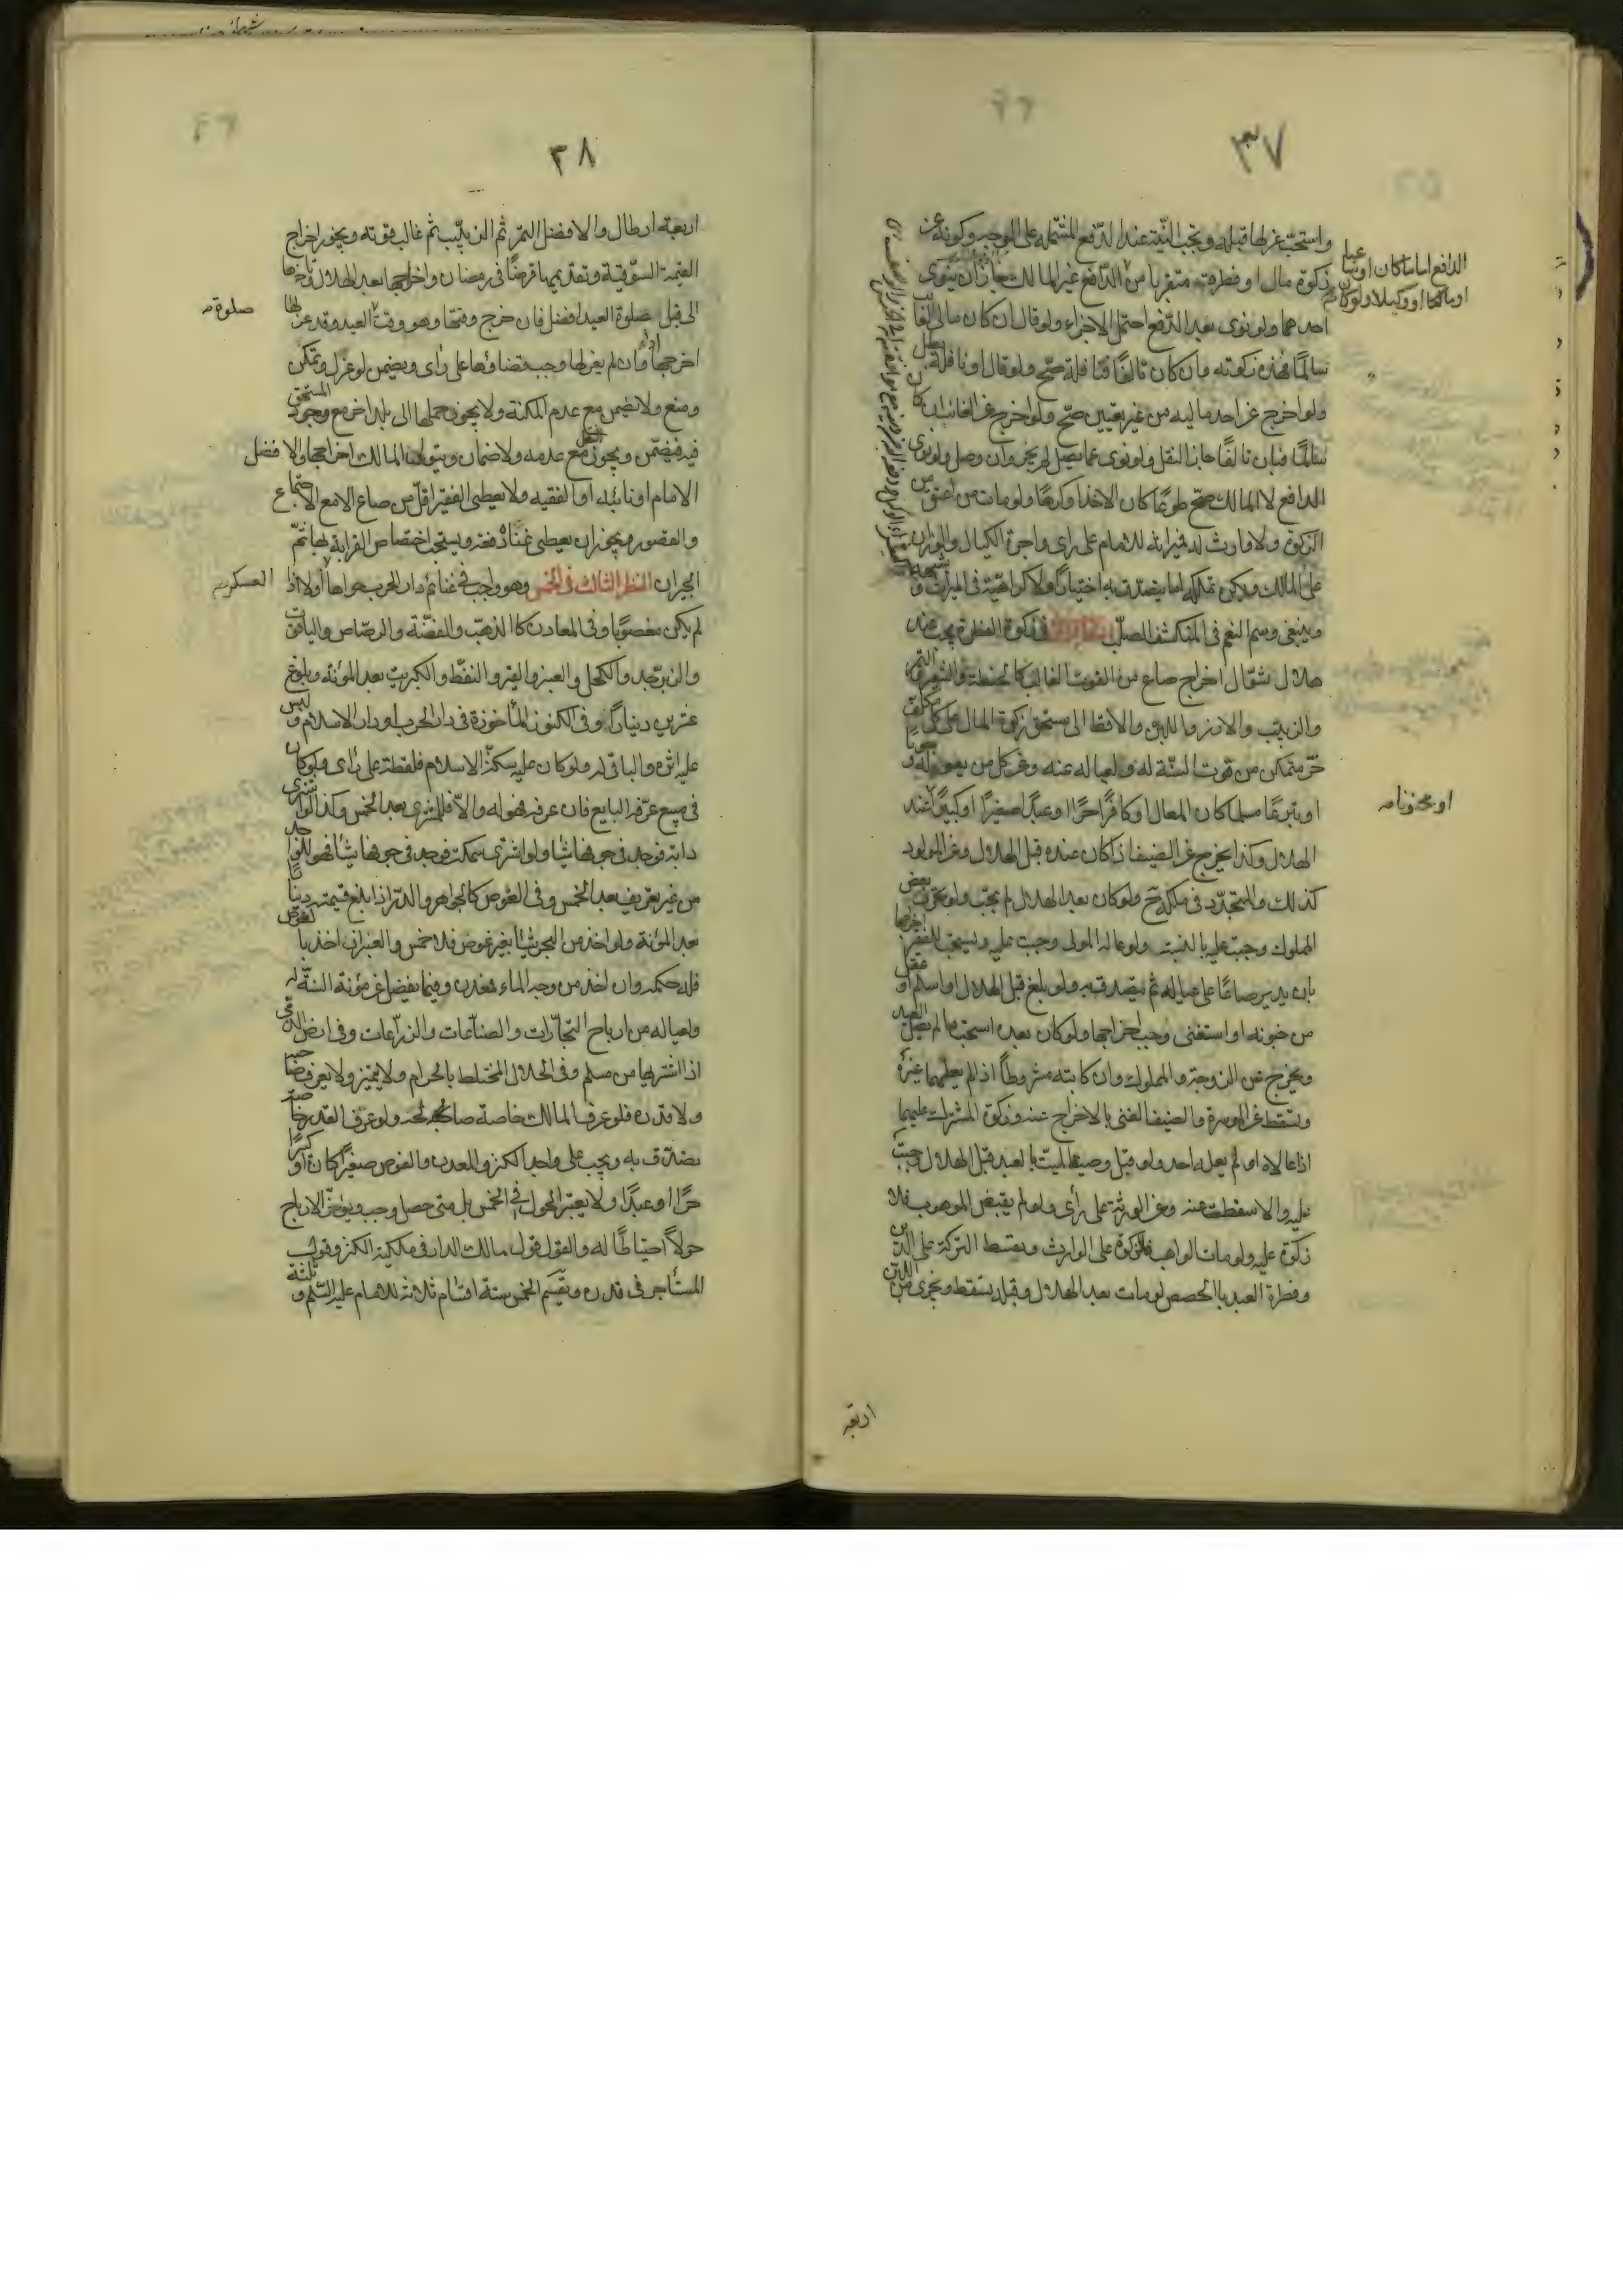 ٣٧
واستحب عزلها قبله ويجب النية عند الدفع المشتملة على الوجه وكونه عن
زكوة مال او فطرة متقربا من الدافع غير المالك جاز ان ينوى
احدهما ولو نوى بعد الدفع احتمل الاجزاء ولو قال ان كان مالى الغائب
سالمًا فهذه زكوته وان كان تالفًا فنافلة صح ولو قال او نافلة بطل
ولو اخرج عن احد ماليه من غير تعيين صح ولو اخرج عن الغائب ان كان
سالمًا فبان تالفًا جاز النقل ولو نوى عما يصل لم يجز وان وصل ولو نوى
الدافع لا المالك صح طوعًا كان الاخذ او كرهًا ولو مات من اعتق من
الزكوة ولا وارث له فميراثه للامام على راى واجرة الكيال والوزان
على المالك ويكره تملك ما يتصدق به اختيارًا ولا كراهية فى الميراث و
وينبغى وسم النعم فى المنكشف الصلب فى زكوة الفطرة يجب عند
هلال شوال اخراج صاع من القوت الغالب كالحنطة والشعير والتمر
والزبيب والارز واللبن والاقط الى مستحق زكوة المال على كل مكلف
حر متمكن من قوت السنة له ولعياله عنه وعن كل من يعوله وجوبا
او تبرعًا مسلما كان المعال او كافرًا حرًا او عبدًا صغيرًا او كبيرًا عند
الهلال وكذا يخرج عن الضيف اذا كان عنده قبل الهلال وعن المولود
كذلك والمتجدد فى ملكه ولو كان بعد الهلال لم يجب ولو تحرر بعض
المملوك وجبت عليه بالنسبة ولو عاله المولى وجبت عليه ويستحب للفقير اخراجها
بان يدير صاعًا على عياله ثم يتصدق به ولو بلغ قبل الهلال او اسلم او عقل
من جنونه او استغنى وجب اخراجها ولو كان بعده استحب ما لم يصل العيد
ويخرج عن الزوجة والمملوك وان كانبته مشروطًا اذا لم يعلهما غيره
وتسقط عن الموسرة والضيف الغنى بالاخراج عنه وزكوة المشترك عليهما
اذا عالاه او لم يعله احد ولو قبل وصية الميت بالعبد قبل الهلال وجبت
عليه والا سقطت عنه وعن الورثة على رأى ولو لم يقبض الموهوب فلا
زكوة عليه ولو مات الواهب فالزكوة على الوارث ويقسط التركة على الدين
وفطرة العبد بالحصص لو مات بعد الهلال وقبله تسقط ويجزى من اللبن
الدافع اماما كان او ساعيا
او مالكا او وكيلا ولو كان
او مجنونا صه
اربعة
٣٨
اربعة ارطال والافضل التمر ثم الزبيب ثم غالب قوته ويجوز اخراج
القيمة السوقية وتقديمها قرضًا فى رمضان واخراجها بعد الهلال وتاخيرها
الى قبل صلوة العيد افضل فان خرج وقتها وهو وقت العيد وقد عزلها
اخرجها وان لم يعزلها وجب قضاؤها على رأى ويضمن لو عزل وتمكن
ومنع ولا يضمن مع عدم المكنة ولا يجوز حملها الى بلد اخر مع وجود المستحق
فيه فيضمن ويجوز مع عدمه ولا ضمان ويتولى المالك اخراجها والافضل
الامام او نائبه او الفقيه ولا يعطى الفقير اقل من صاع الا مع الاجتماع
والقصور ويجوز ان يعطى غناه دفعة ويستحب اختصاص القرابة بها ثم
الجيران النظر الثالث فى الخمس وهو واجب فى غنائم دار الحرب حواها او لا اذا
لم يكن مغصوبًا وفى المعادن كالذهب والفضة والرصاص والياقوت
والزبرجد والكحل والعنبر والقير والنفط والكبريت بعد المؤنة وبلوغ
عشرين دينارًا وفى الكنوز المأخوذة فى دار الحرب او دار الاسلام وليس
عليه اثره والباقى له ولو كان عليه سكة الاسلام فلقطة على راى ولو كان
فى مبيع عرفه البايع فان عرفه فهو له والا فللمشترى بعد الخمس وكذا لو اشترى
دابة فوجد فى جوفها شيئا ولو اشترى سمكة فوجد فى جوفها شيئا فهو للواجد
من غير تعريف بعد الخمس وفى الغوص كالجواهر والدر اذا بلغ قيمته دينارًا
بعد المؤنة ولو اخذ من البحر شيئا بغير غوص فلا خمس والعنبر ان اخذ بالغوص
فله حكمه وان اخذ من وجه الماء فمعدن وفيما يفضل عن مؤنة السنة له
ولعياله من ارباح التجارات والصناعات والزراعات وفى ارض الذمى
اذا اشتراها من مسلم وفى الحلال المختلط بالحرام ولا يتميز ولا يعرف صاحبه
ولا قدره فلو عرف المالك خاصة صالحه ولو عرف القدر خاصة
تصدق به ويجب على واجد الكنز والمعدن والغوص صغيرًا كان او كبيرًا
حرًا او عبدًا ولا يعتبر الحول فى الخمس بل متى حصل وجب ويؤخر الارباح
حولاً احتياطًا له والقول قول مالك الدار فى ملكية الكنز وقول
المستأجر فى قدره ويقسم الخمس ستة اقسام ثلاثة للامام عليه السلم وثلثة
صلوة صه
العسكر صه